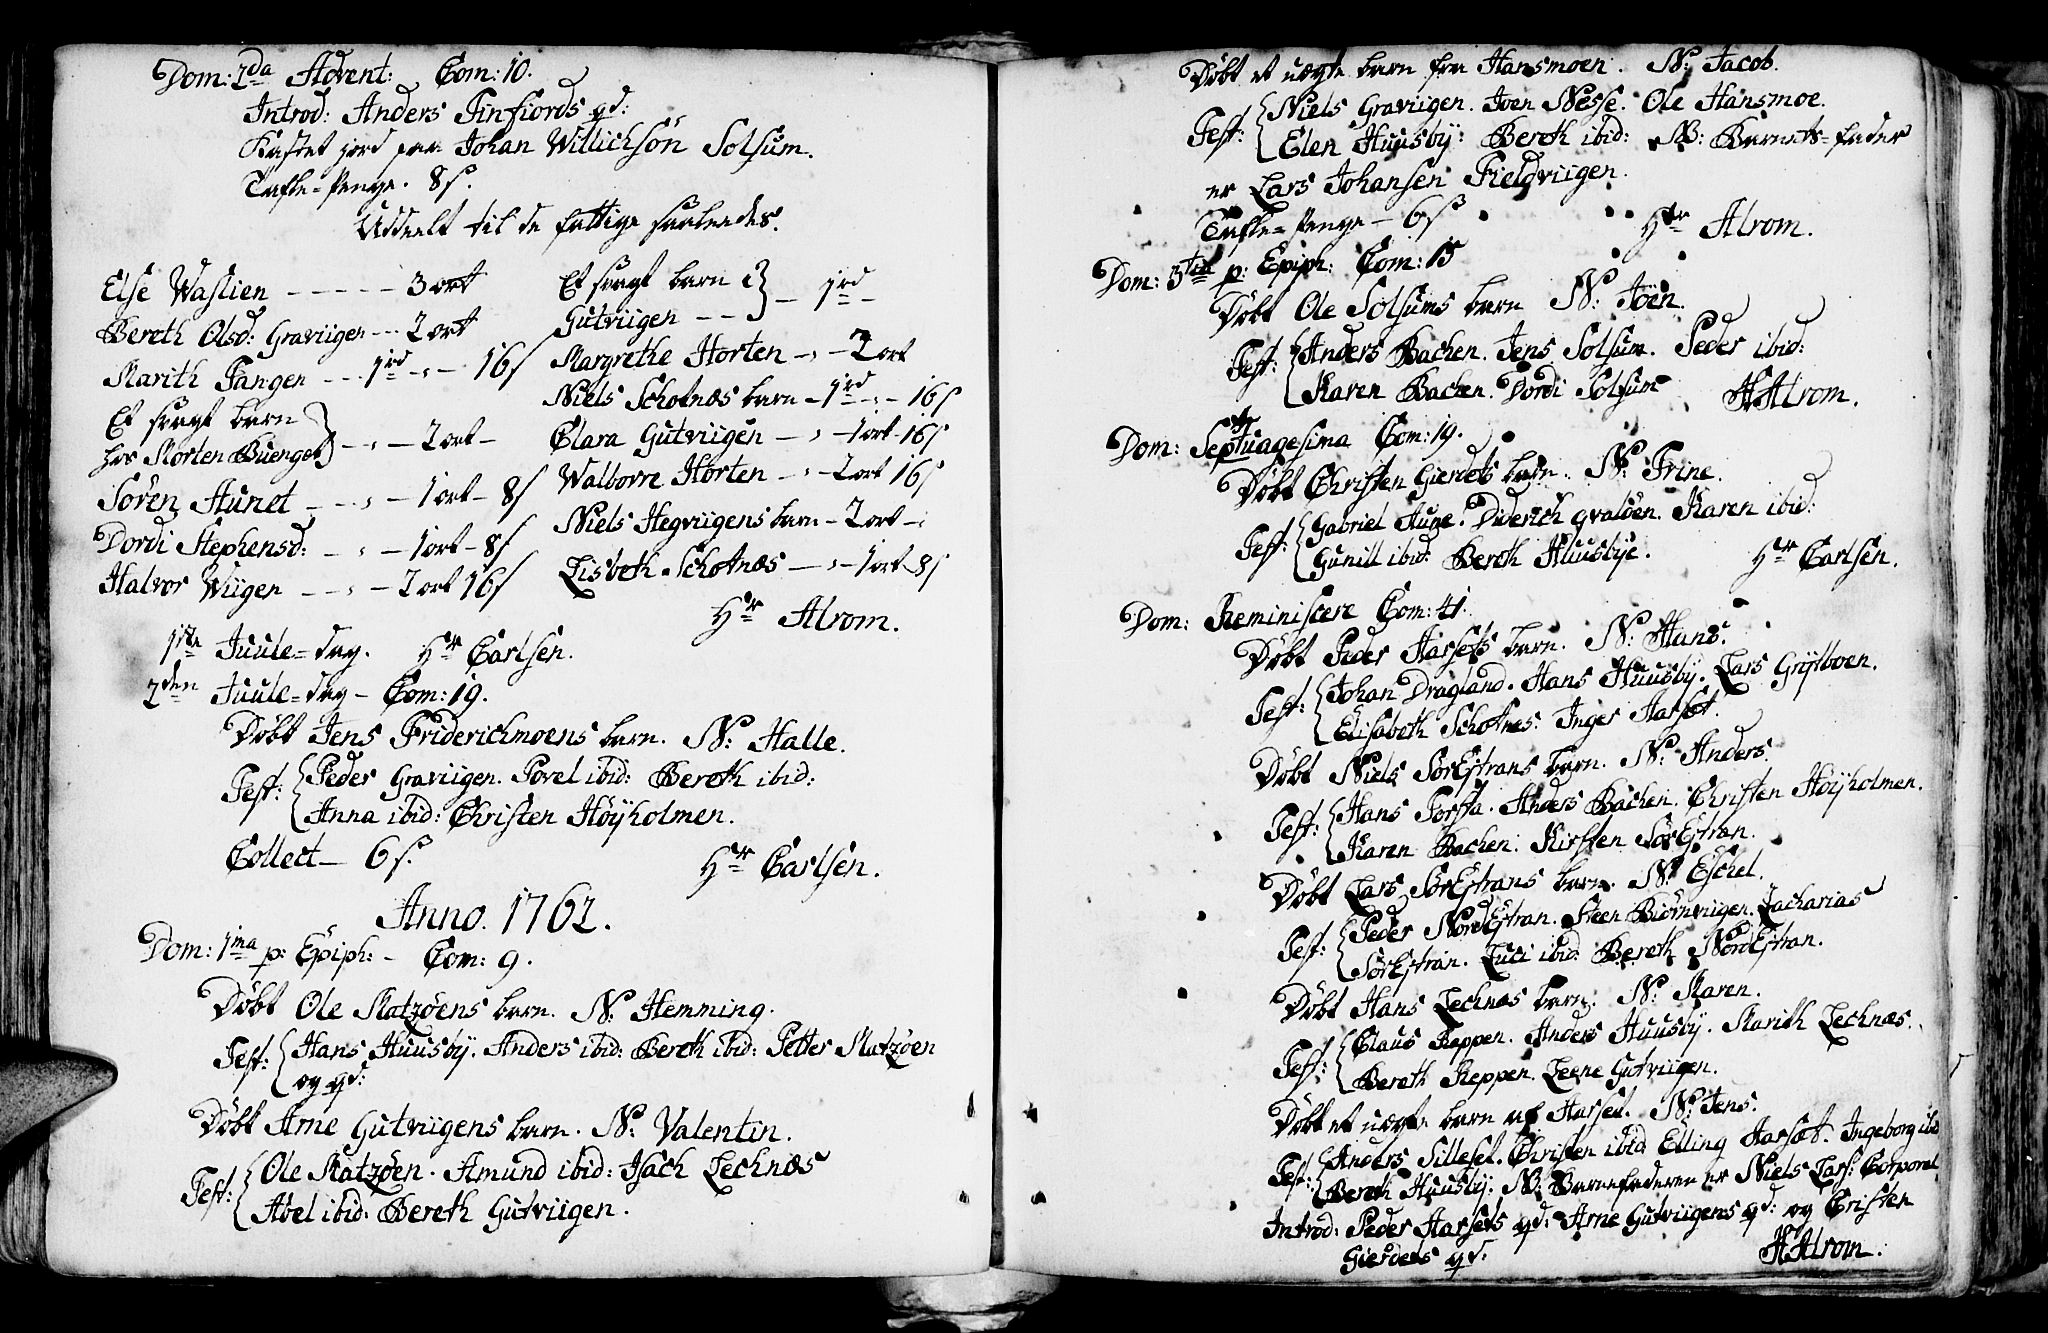 Dom: 2da Advent: Com: 10.
Introd: Anders Finfiords qd:
Kastet jord paa Johan Willichsön Solsum.
Tafle=Penge. 8 s.
Uddeelt til de fattige saaledes.
Else Waslien - - - - - 3 ort
Bereth Olsd: Graviigen - - - 2 ort
Marith Fangen - - - 1 rd - " - 16 s
Et svagt barn
hos Morten Buenget } - " - 2 ort -
Sören Aunet - - " - 1 ort - 8 s
Dordi Stephensd: - " - 1 ort - 8 s
Halvor Wiigen - - " - 2 ort 16 s
Et svagt barn i
Gutviigen - - } - 1 rd -
Margrethe Horten - " - 2 ort
Niels Schotnæs barn - 1 rd - " - 16 s
Clara Gutviigen - " - 1 ort - 16 s
Walborre Horten - " - 2 ort 16 s
Niels Hegviigens barn - 2 ort - "
Lisbeth Schotnæs - " - 1 ort - 8 s
Hr Alrom.
1ste Juule=dag. Hr Carlsen.
2den Juule=dag - Com: 19.
Döbt Jens Friderichmoens barn. N: Halle.
Test: { Peder Graviigen. Povel ibid: Bereth ibid:
Anna ibid: Christen Höyholmen.
Collect - 6 s.
Hr Carlsen.
Anno. 1762.
Dom: 1ma p: Epiph: - Com: 9.
Döbt Ole Matzöens barn. N: Hemming.
Test: { Hans Huusby. Anders ibid: Bereth ibid: Petter Matzöen
og qd:
Döbt Arne Gutviigens barn. N: Valentin.
Test: { Ole Matzöen. Amund ibid: Isach Lechnæs
Abel ibid: Bereth Gutviigen.
Döbt et uægte barn fra Hansmoen. N: Jacob.
Test: { Niels Graviigen. Joen Nesse. Ole Hansmoe.
Elen Huusby: Bereth ibid: NB: Barnets=fader
er Lars Johansen Fieldviigen.
Tafle=Penge - 6 s.
Hr Alrom.
Dom: 3tia p: Epiph: Com: 15
Döbt Ole Solsums barn N: Jöen.
Test: { Anders Bachen. Jens Solsum. Peder ibid:
Karen Bachen. Dordi Solsum
H Alrom.
Dom: Septuagesima Com: 19.
Döbt Christen Gierdets barn. N: Trine.
Test: { Gabriel Aune. Diderich Qvalöen. Karen ibid:
Gunill ibid: Bereth Huusbye.
Hr Carlsen.
Dom: Reminiscere Com: 41.
Döbt Peder Harsets barn. N: Hans.
Test: { Johan Dragland. Hans Huusby. Lars Grytboen.
Elisabeth Schotnes. Inger Harset.
Döbt Niels SörEstrans barn. N: Anders.
Test: { Hans Torsta. Anders Bachen. Christen Höyholmen.
Karen Bachen. Kirsten SörEstran.
Döbt Lars SörEstrans barn. N: Eschel.
Test: { Peder NordEstran. Steen Biörnviigen. Zacharias
SörEstran. Luci ibid: Bereth NordEstran.
Döbt Hans Lechnæs barn. N: Karen.
Test: { Claus Reppen. Anders Huusby. Marith Lechnæs.
Bereth Reppen. Leene Gutviigen.
Döbt et uægte barn af Harset. N: Jens.
Test: { Anders Silleset. Christen ibid Elling Harsæt. Ingeborg ibid
Bereth Huusby. NB: Barnefaderen er Niels Lars: Corporal
Introd: Peder Harsets qd: Arne Gutviigens qd: og Cristen
Gierdets qd.
H Alrom.